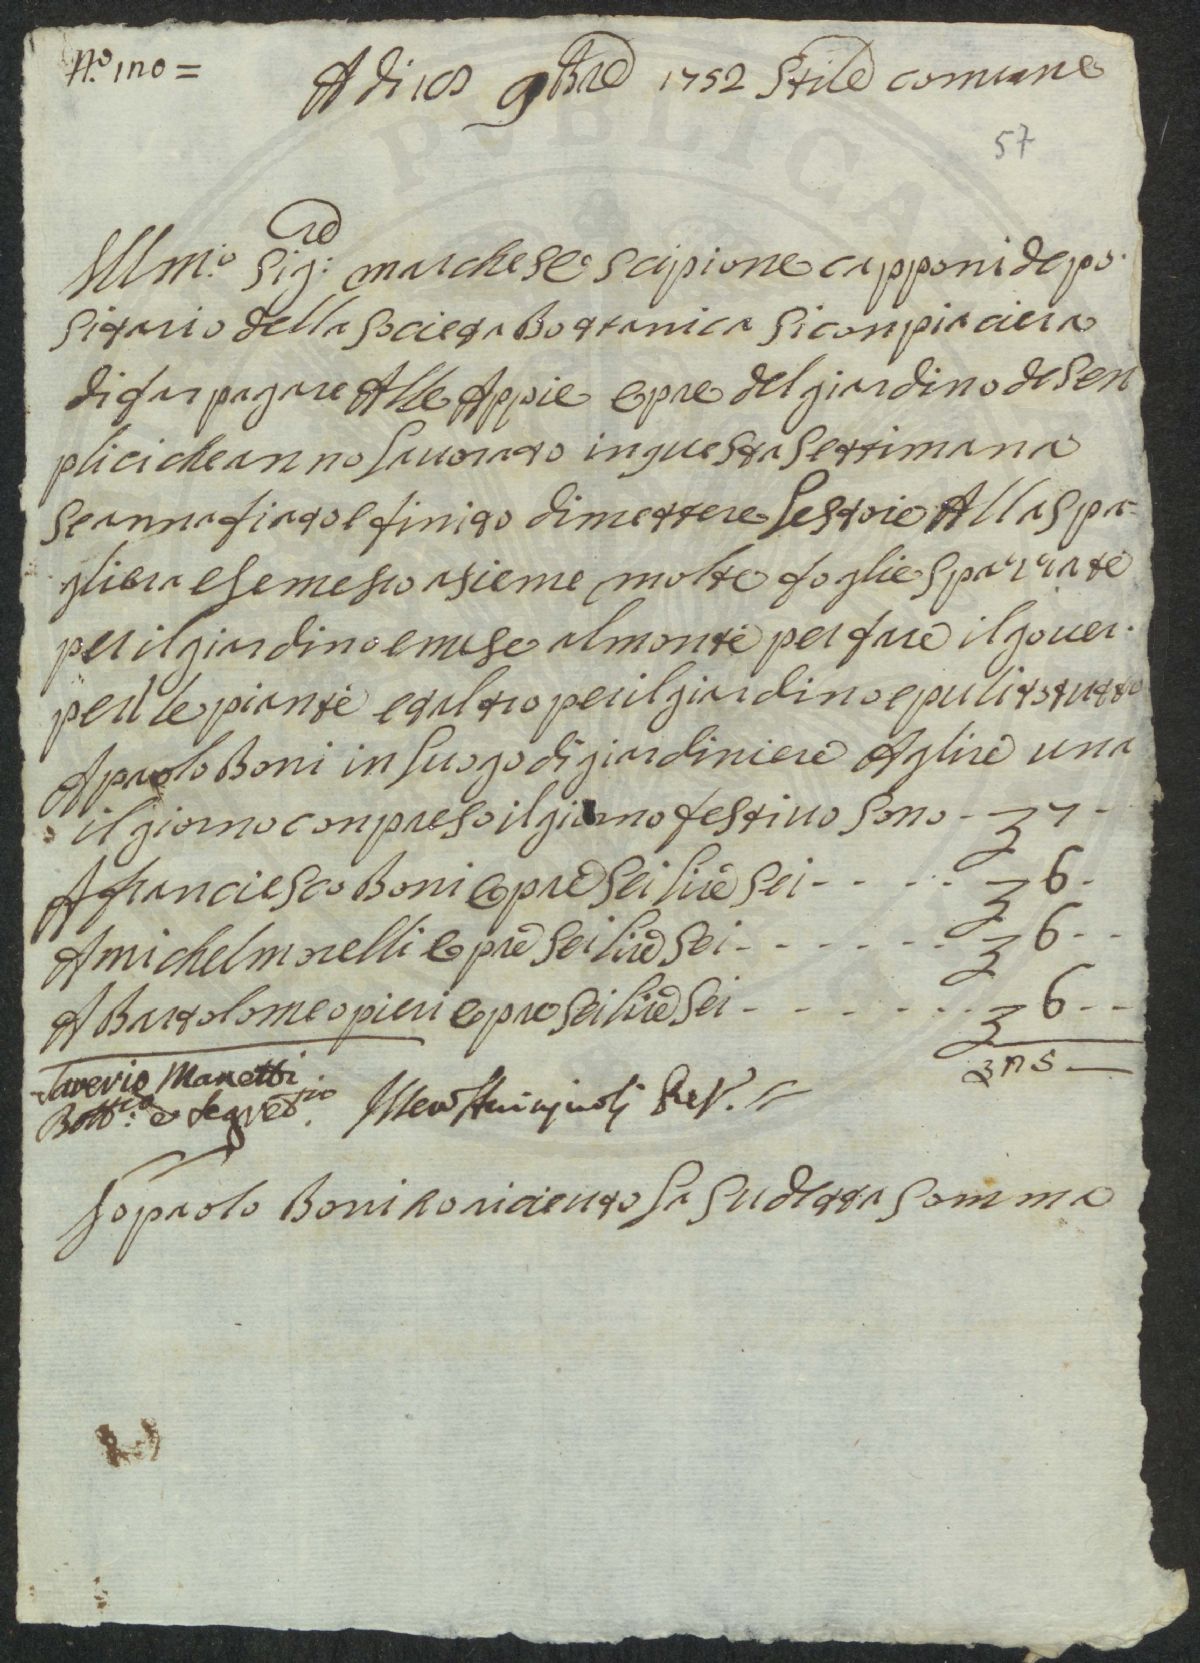 N.º 120 =
A di 18 9bre 1752 Stile comune
57
Illm.º Sig:re marchese scipione capponi depo-
sitario della societa Bottanica si conpiaciera
di far pagare Alle Appie opre del giardino de sen
plici che anno lavorato in questa settimana
se annafiato e finito di mettere le stoie Alla spa-
gliera e se meso asieme molte foglie sparse
per il giardino e mese al monte per fare il gover.
per le piante e taltro per il giardino e pulito tutto
A paolo Boni in luogo di giardiniere A lire una
il giorno conpreso il giorno festivo sono - £ 7 -
A franciesco Boni opre sei lire sei - - - - £ 6 -
A michel morelli opre sei lire sei - - - - - - £ 6 - -
A Bartolomeo pieri opre sei lire sei - - - - - - £ 6 - -
£ 25 —
Saverio Manetti
Bott:co e Segret:rio.
Io paolo Boni o riceuto la sudetta somma